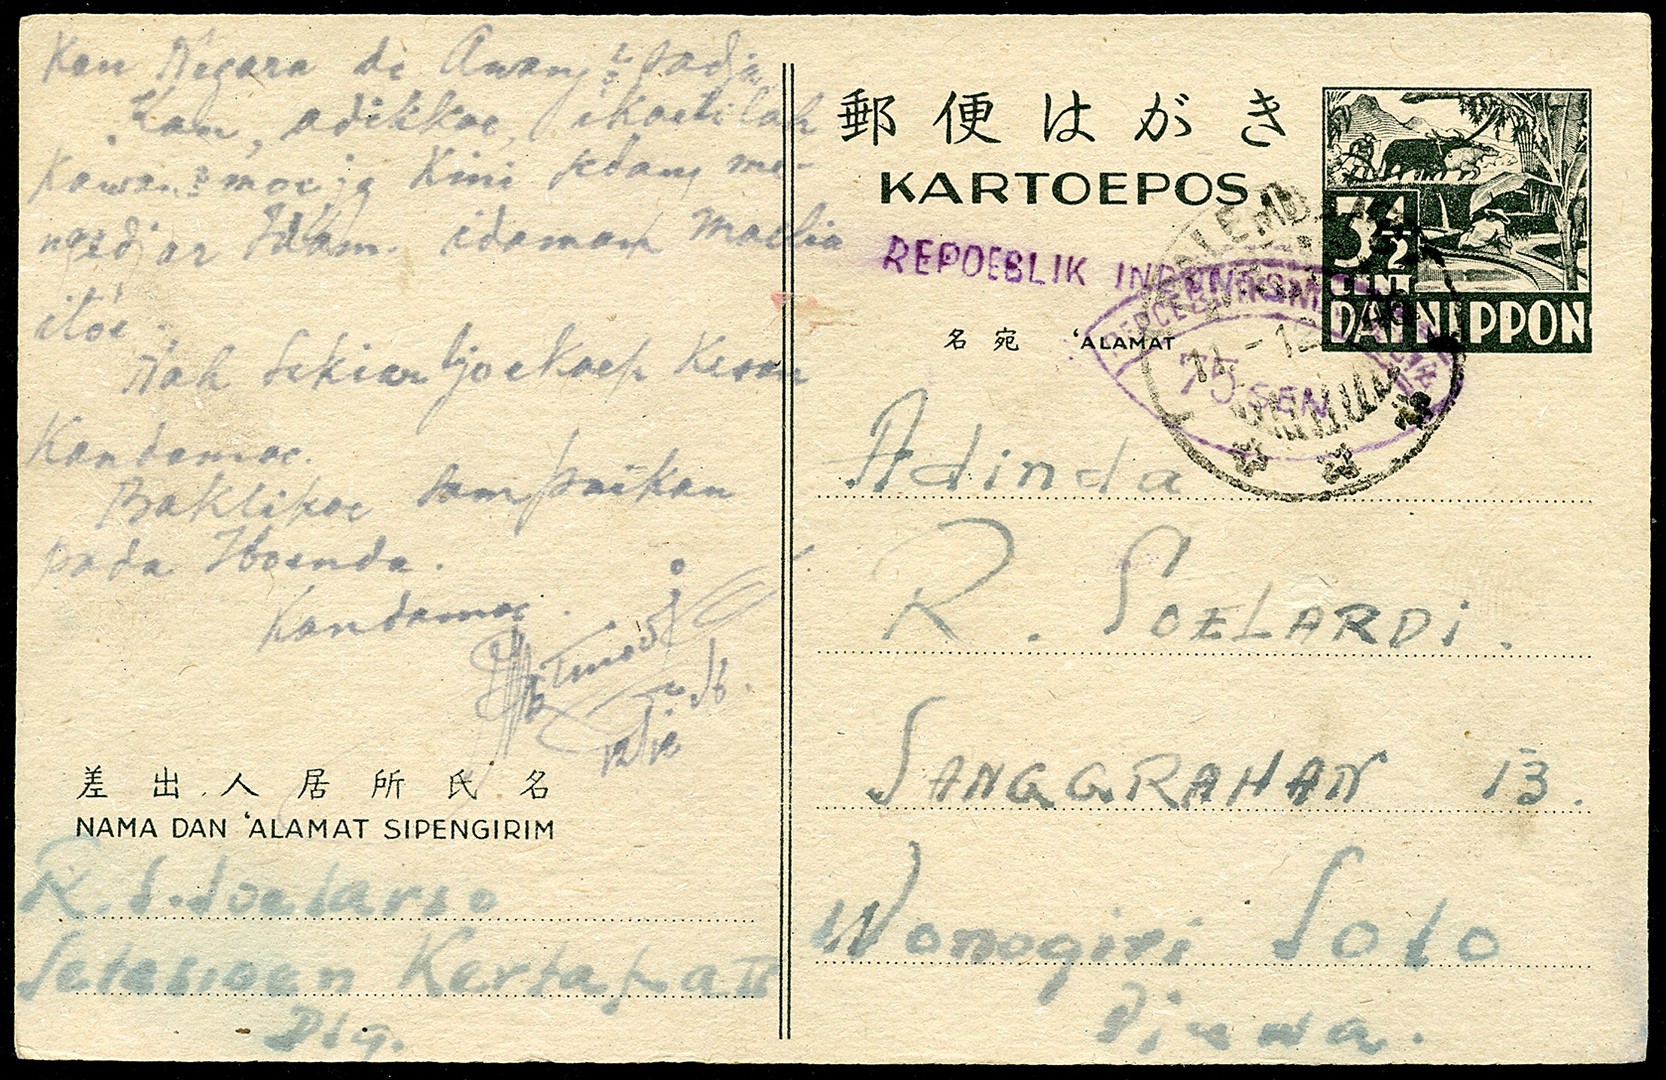 Kan Negara di Awang² sadja
Kan, adikkoe, ikoetilah
Kawan²moe jg Kini sedang me-
ngedjar Idam-idaman moelia
itoe.
Nah sekian tjoekoep kesan
Kandamoe.
Baktikoe sampaikan
pada Iboenda.
Kandamoe.
差出人居所氏名
NAMA DAN 'ALAMAT SIPENGIRIM
R. S. Soelarso
Setasioen Kertapati
Plg.
郵便はがき
KARTOEPOS
REPOEBLIK INDONESIA
3½
CENT
DAI NIPPON
名宛 'ALAMAT
75 SEN
Adinda
R. SOELARDI.
SANGGRAHAN 13.
Wonogiri Solo
Djawa.